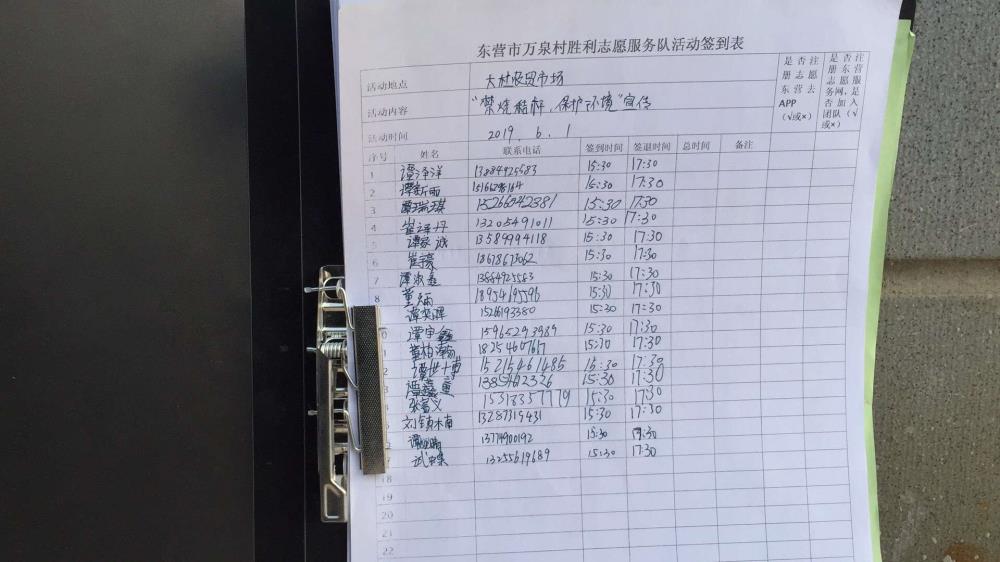 东营市万泉村胜利志愿服务队活动签到表
活动地点 大杜农贸市场
活动内容 "禁烧秸秆、保护环境"宣传
活动时间 2019. 6. 1
是否注册志愿东营去APP（√或×）
是否注册东营志愿服务网，是否加入团队（√或×）
序号 姓名 联系电话 签到时间 签退时间 总时间 备注
1 谭泽洋 13884925583 15:30 17:30
2 谭新雨 15:30 17:30
3 谭瑞琪 15266542381 15:30 17:30
4 崔泽丹 13205491011 15:30 17:30
5 谭家诚 13589994118 15:30 17:30
6 崔豪 18678673062 15:30 17:30
7 谭淑 13884925583 15:30 17:30
8 董 18954195596 15:30 17:30
谭奕泽 15266193380 15:30 17:30
0 谭宇鑫 15965293989 15:30 17:30
1 董柏 18254607617 15:30 17:30
2 谭世博 15215461485 15:30 17:30
3 谭鑫重 15:30 17:30
张富义 15318357779 15:30 17:30
刘镇南 13287319431 15:30 17:30
谭 13774900192 15:30 17:30
武 13255619689 15:30 17:30
18
19
20
21
22